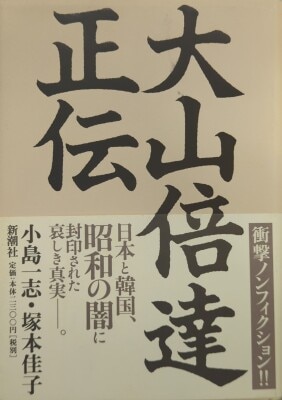 大山倍達
正伝
衝撃ノンフィクション!!
日本と韓国、
昭和の闇に
封印された
哀しき真実――。
小島一志・塚本佳子
新潮社
定価:本体二三〇〇円[税別]